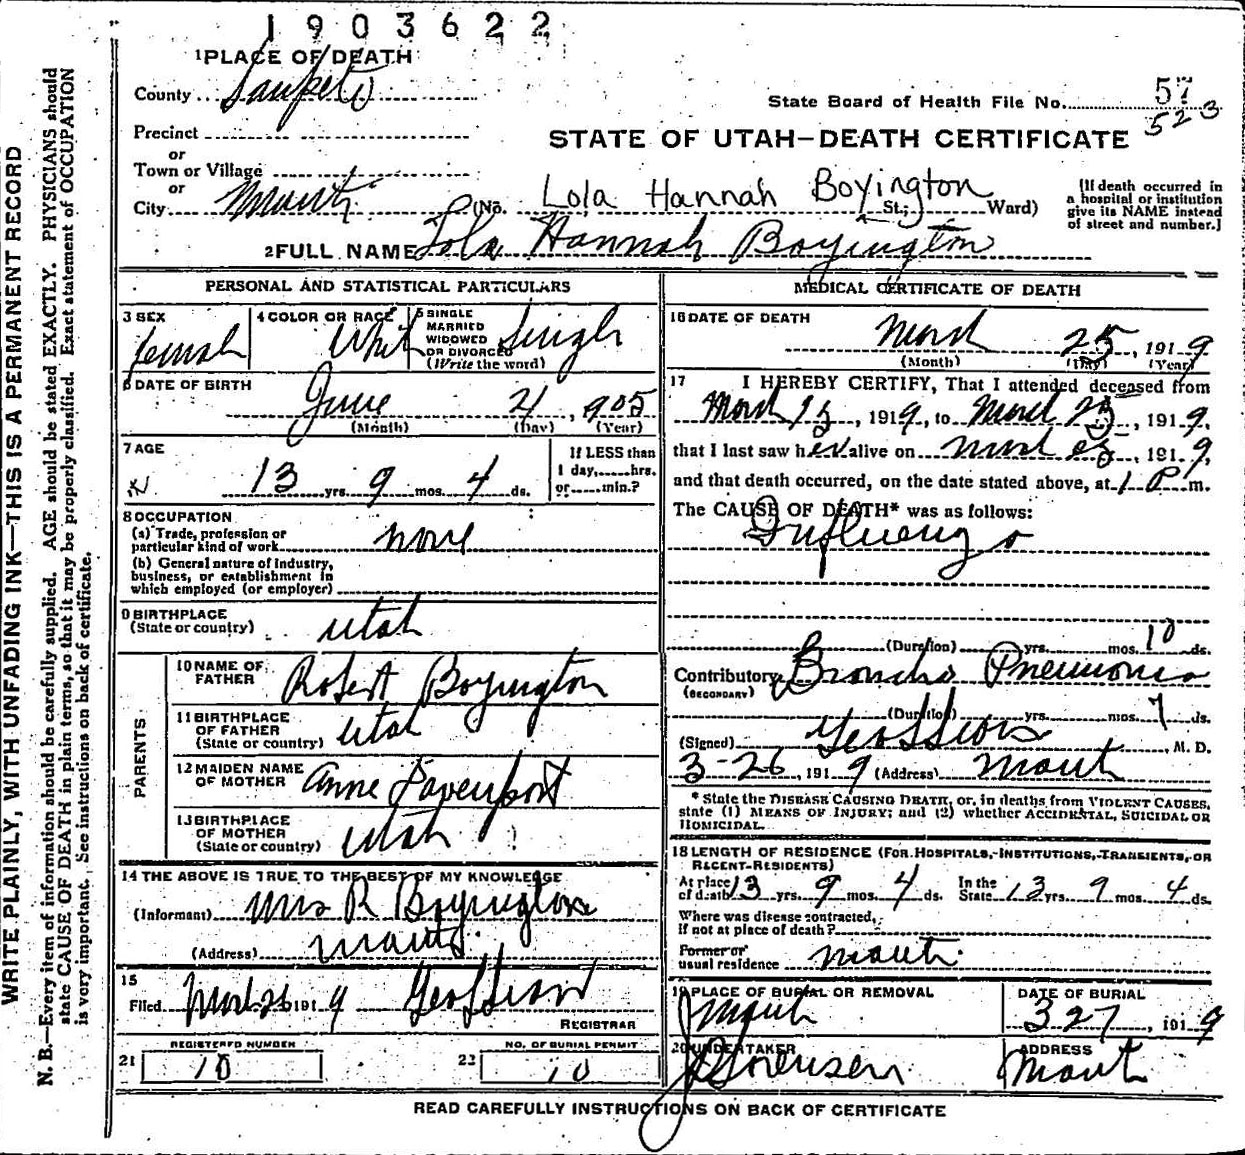 1903622
1 PLACE OF DEATH
County Sanpete
State Board of Health File No. 57
523
Precinct
STATE OF UTAH—DEATH CERTIFICATE
or
Town or Village
or
City Manti (No. Lola Hannah Boyington St.; Ward)
[If death occurred in
a hospital or institution
give its NAME instead
of street and number.]
2 FULL NAME Lola Hannah Boyington
PERSONAL AND STATISTICAL PARTICULARS
3 SEX
female
4 COLOR OR RACE
White
5 SINGLE
MARRIED
WIDOWED
OR DIVORCED
(Write the word)
Single
6 DATE OF BIRTH
June 21, 905
(Month) (Day) (Year)
7 AGE
13 yrs. 9 mos. 4 ds.
If LESS than
1 day,......hrs.
or......min.?
8 OCCUPATION
(a) Trade, profession or
particular kind of work none
(b) General nature of Industry,
business, or establishment in
which employed (or employer)
9 BIRTHPLACE
(State or country) Utah
PARENTS
10 NAME OF
FATHER Robert Boyington
11 BIRTHPLACE
OF FATHER
(State or country) Utah
12 MAIDEN NAME
OF MOTHER Anne Davenport
13 BIRTHPLACE
OF MOTHER
(State or country) Utah
14 THE ABOVE IS TRUE TO THE BEST OF MY KNOWLEDGE
(Informant) Mrs R Boyington
(Address) Manti
15
Filed March 26 1919
REGISTRAR
21 REGISTERED NUMBER
10
22 NO. OF BURIAL PERMIT
10
MEDICAL CERTIFICATE OF DEATH
16 DATE OF DEATH
March 25, 1919
(Month) (Day) (Year)
17 I HEREBY CERTIFY, That I attended deceased from
March 15, 1919, to March 25, 1919,
that I last saw her alive on March 25, 1919,
and that death occurred, on the date stated above, at 1 P m.
The CAUSE OF DEATH* was as follows:
Influenza
(Duration) yrs. mos. 10 ds.
Contributory Broncho Pneumonia
(SECONDARY)
(Duration) yrs. mos. 7 ds.
(Signed) M. D.
3-26, 1919 (Address) Manti
* State the DISEASE CAUSING DEATH, or, in deaths from VIOLENT CAUSES,
state (1) MEANS OF INJURY; and (2) whether ACCIDENTAL, SUICIDAL OR
HOMICIDAL.
18 LENGTH OF RESIDENCE (FOR HOSPITALS, INSTITUTIONS, TRANSIENTS, OR
RECENT RESIDENTS)
At place
of death 13 yrs. 9 mos. 4 ds. In the
State 13 yrs. 9 mos. 4 ds.
Where was disease contracted,
if not at place of death?
Former or
usual residence Manti
19 PLACE OF BURIAL OR REMOVAL
Manti
DATE OF BURIAL
3 27, 1919
20 UNDERTAKER
Sorensen
ADDRESS
Manti
READ CAREFULLY INSTRUCTIONS ON BACK OF CERTIFICATE
WRITE PLAINLY, WITH UNFADING INK—THIS IS A PERMANENT RECORD
N. B.—Every item of information should be carefully supplied. AGE should be stated EXACTLY. PHYSICIANS should
state CAUSE OF DEATH in plain terms, so that it may be properly classified. Exact statement of OCCUPATION
is very important. See instructions on back of certificate.